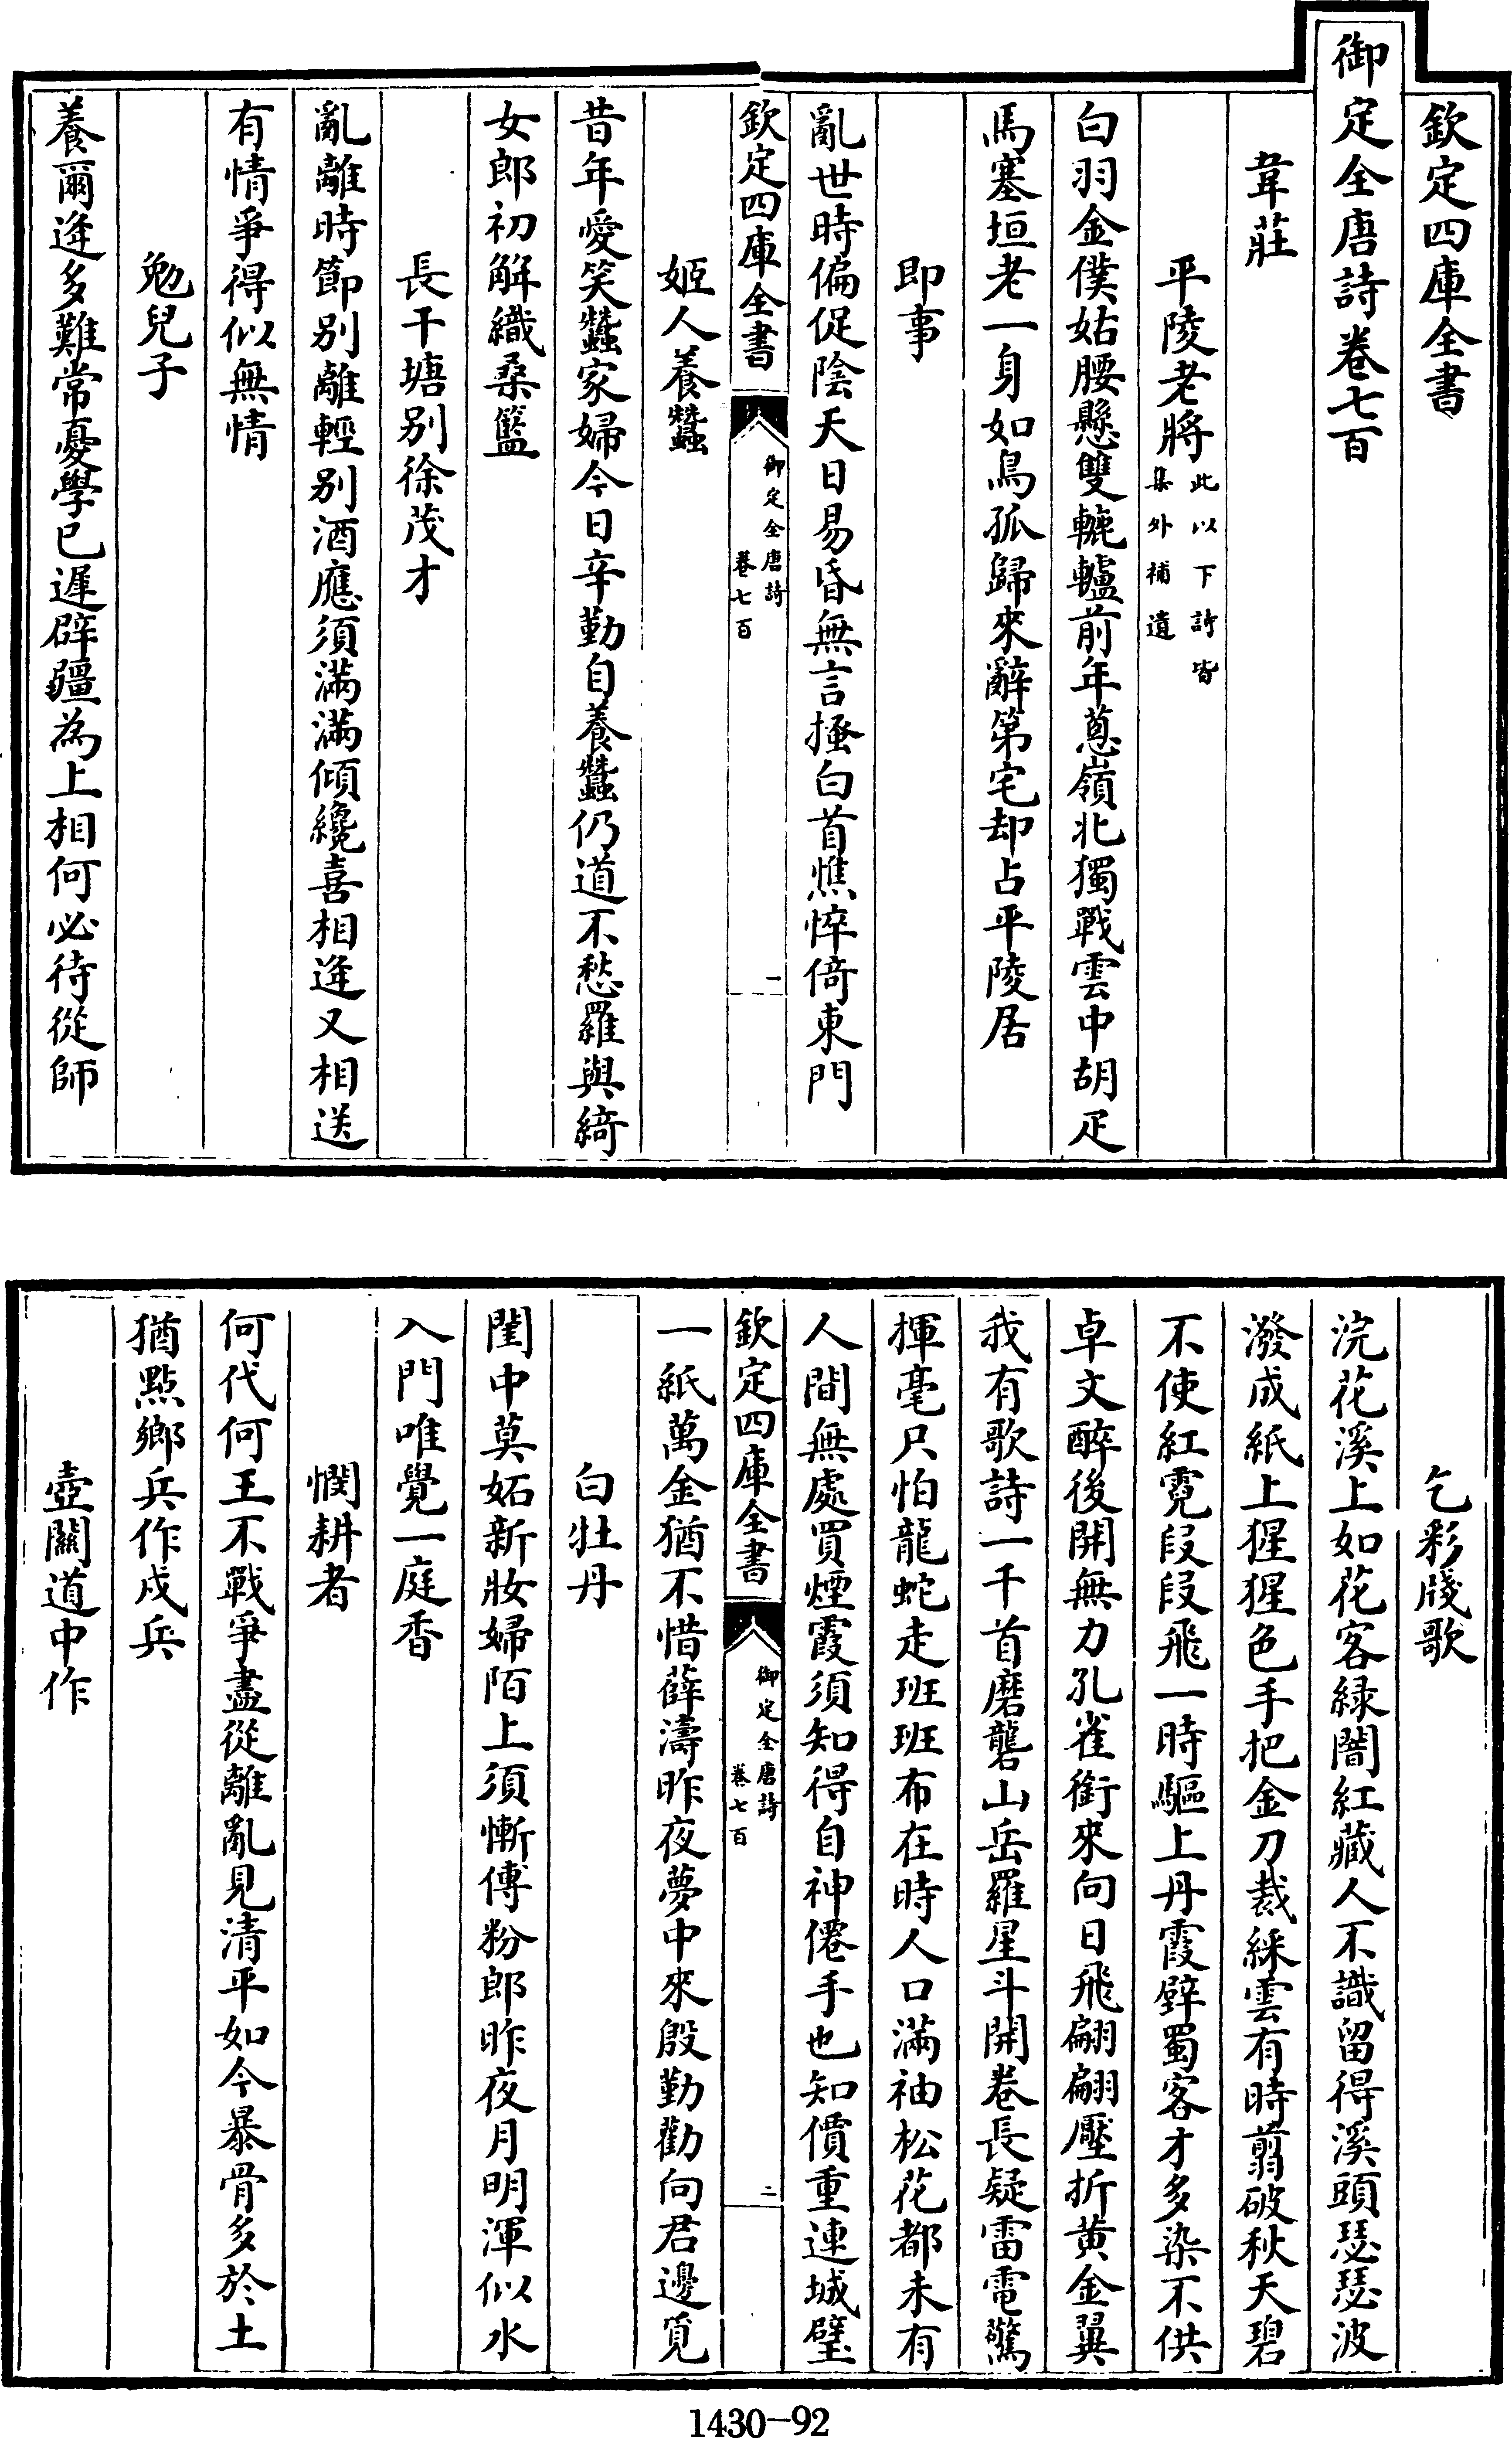 欽定四庫全書
御定全唐詩卷七百
韋莊
平陵老將此以下詩皆集外補遺
白羽金僕姑腰懸雙轆轤前年蔥嶺北獨戰雲中胡疋
馬塞垣老一身如鳥孤歸來辭第宅却占平陵居
即事
亂世時偏促陰天日易昏無言搔白首憔悴倚東門
欽定四庫全書
御定全唐詩
卷七百
一
姬人養蠶
昔年愛笑蠶家婦今日辛勤自養蠶仍道不愁羅與綺
女郎初解織桑籃
長干塘别徐茂才
亂離時節别離輕别酒應須滿滿傾纔喜相逢又相送
有情爭得似無情
勉兒子
養爾逢多難常憂學已遲辟疆為上相何必待從師
乞彩牋歌
浣花溪上如花客緑闇紅藏人不識留得溪頭瑟瑟波
潑成紙上猩猩色手把金刀裁綵雲有時翦破秋天碧
不使紅霓段段飛一時驅上丹霞壁蜀客才多染不供
卓文醉後開無力孔雀銜來向日飛翩翩壓折黄金翼
我有歌詩一千首磨礱山岳羅星斗開卷長疑雷電驚
揮毫只怕龍蛇走班班布在時人口滿袖松花都未有
人間無處買煙霞須知得自神僊手也知價重連城璧
欽定四庫全書
御定全唐詩
卷七百
二
一紙萬金猶不惜薛濤昨夜夢中來殷勤勸向君邊覓
白牡丹
閨中莫妬新妝婦陌上須慚傅粉郎昨夜月明渾似水
入門唯覺一庭香
憫耕者
何代何王不戰爭盡從離亂見清平如今暴骨多於土
猶點鄉兵作戍兵
壺關道中作
1430-92